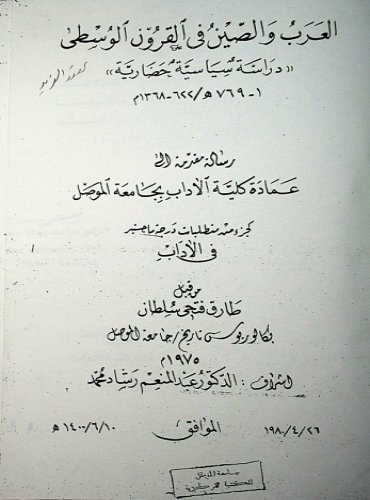 العرب والصين في القرون الوسطى
«دراسة سياسية حضارية»
١-٧٦٩هـ/٦٢٢-١٣٦٨م
رسالة مقدمة الى
عمادة كلية الآداب بجامعة الموصل
كجزء من متطلبات درجة ماجستير
في الآداب
من قبل
طارق فتحي سلطان
بكالوريوس تاريخ/جامعة الموصل
١٩٧٥م
اشراف: الدكتور عبدالمنعم رشاد محمد
١٤٠٠/٦/١٠هـ الموافق ١٩٨٠/٤/٢٦
جامعة الموصل
المكتبة المركزية